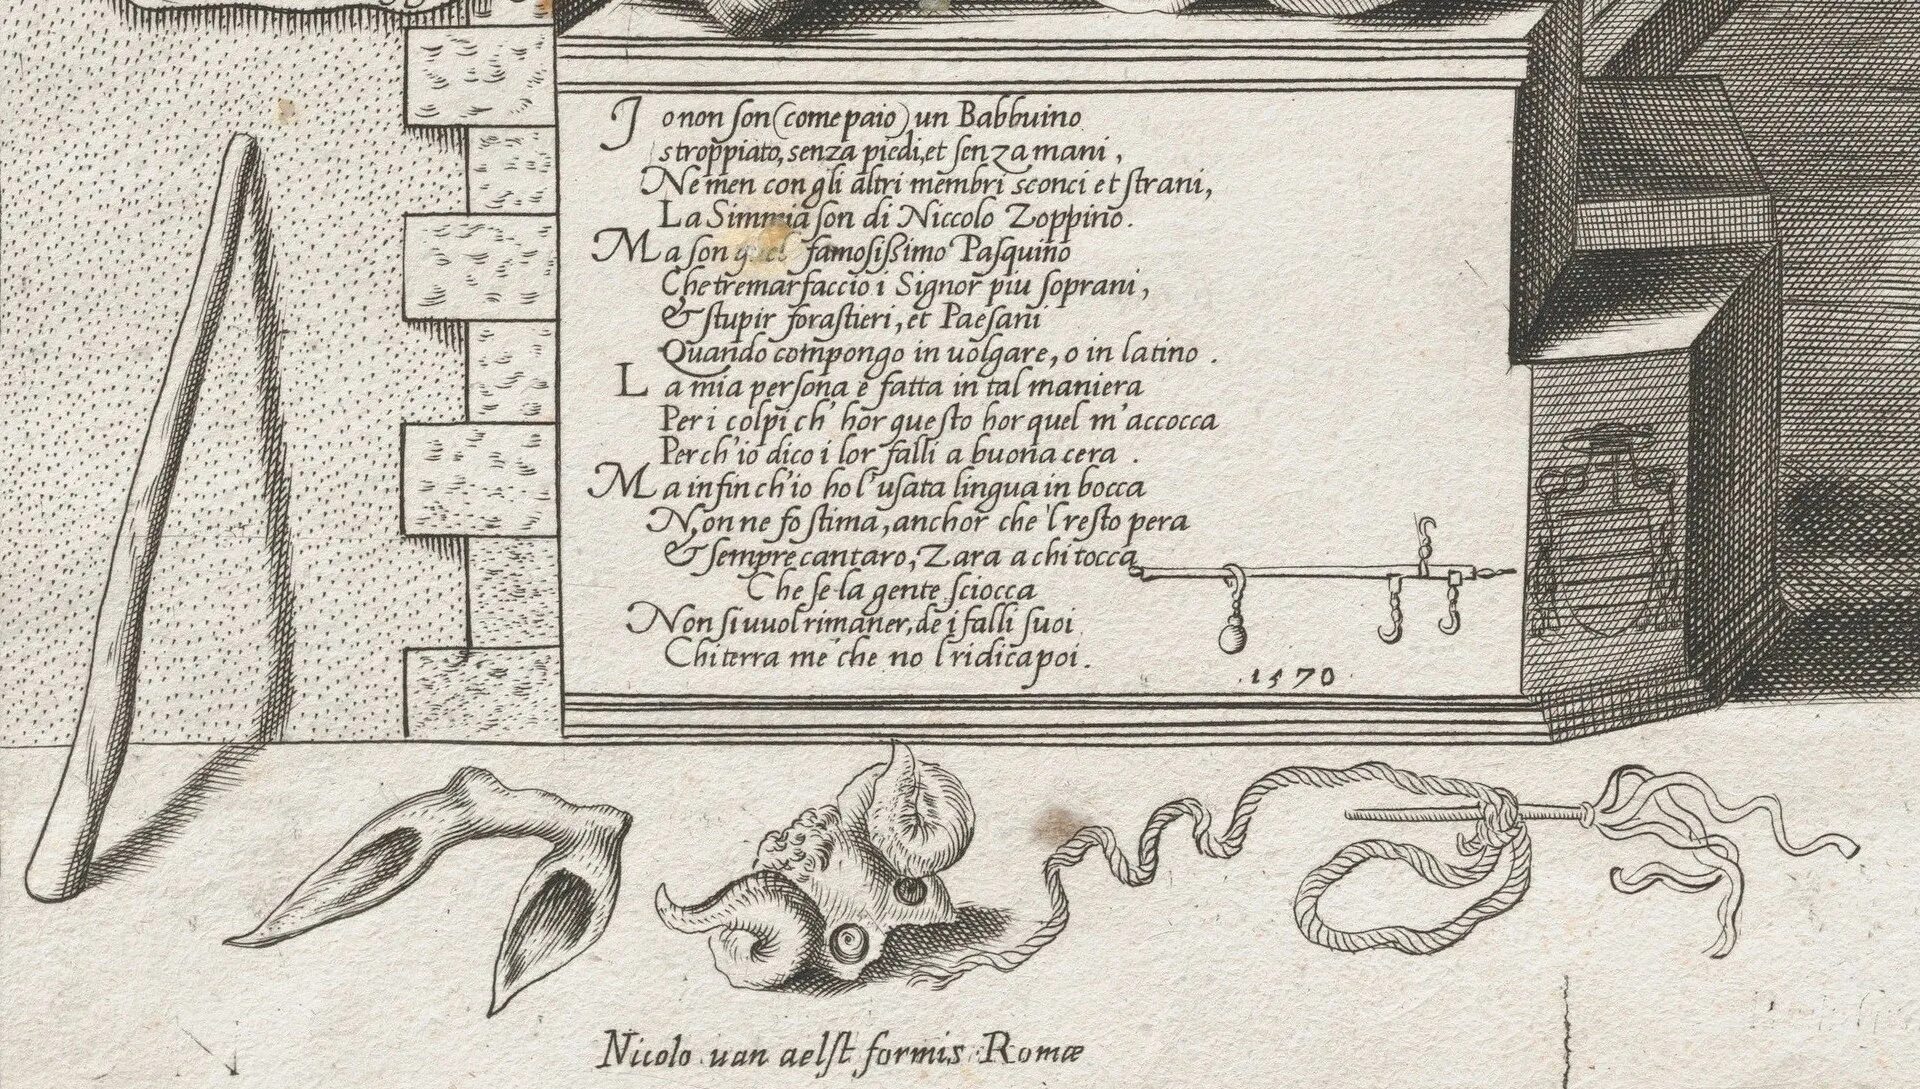 Io non ſon (come paio) un Babbuino
stroppiato, senza piedi, et ſenza mani,
Ne men con gli altri membri sconci et ſtrani,
La Simmia ſon di Niccolo Zoppino.
Ma ſon quel famoſiſſimo Paſquino
Che tremar faccio i Signor piu ſoprani,
& ſtupir foraſtieri, et Paeſani
Quando compongo in uolgare, o in latino.
La mia perſona è fatta in tal maniera
Per i colpi ch' hor queſto hor quel m'accocca
Perch'io dico i lor falli a buona cera.
Ma infin ch'io ho l'uſata lingua in bocca
Non ne fo ſtima, anchor che 'l reſto pera
& ſempre cantaro, Zara a chi tocca
Che ſe la gente ſciocca
Non ſi uuol rimaner, de i falli ſuoi
Chi terra me che no l ridica poi.
1570
Nicolo uan aelſt formis Romæ